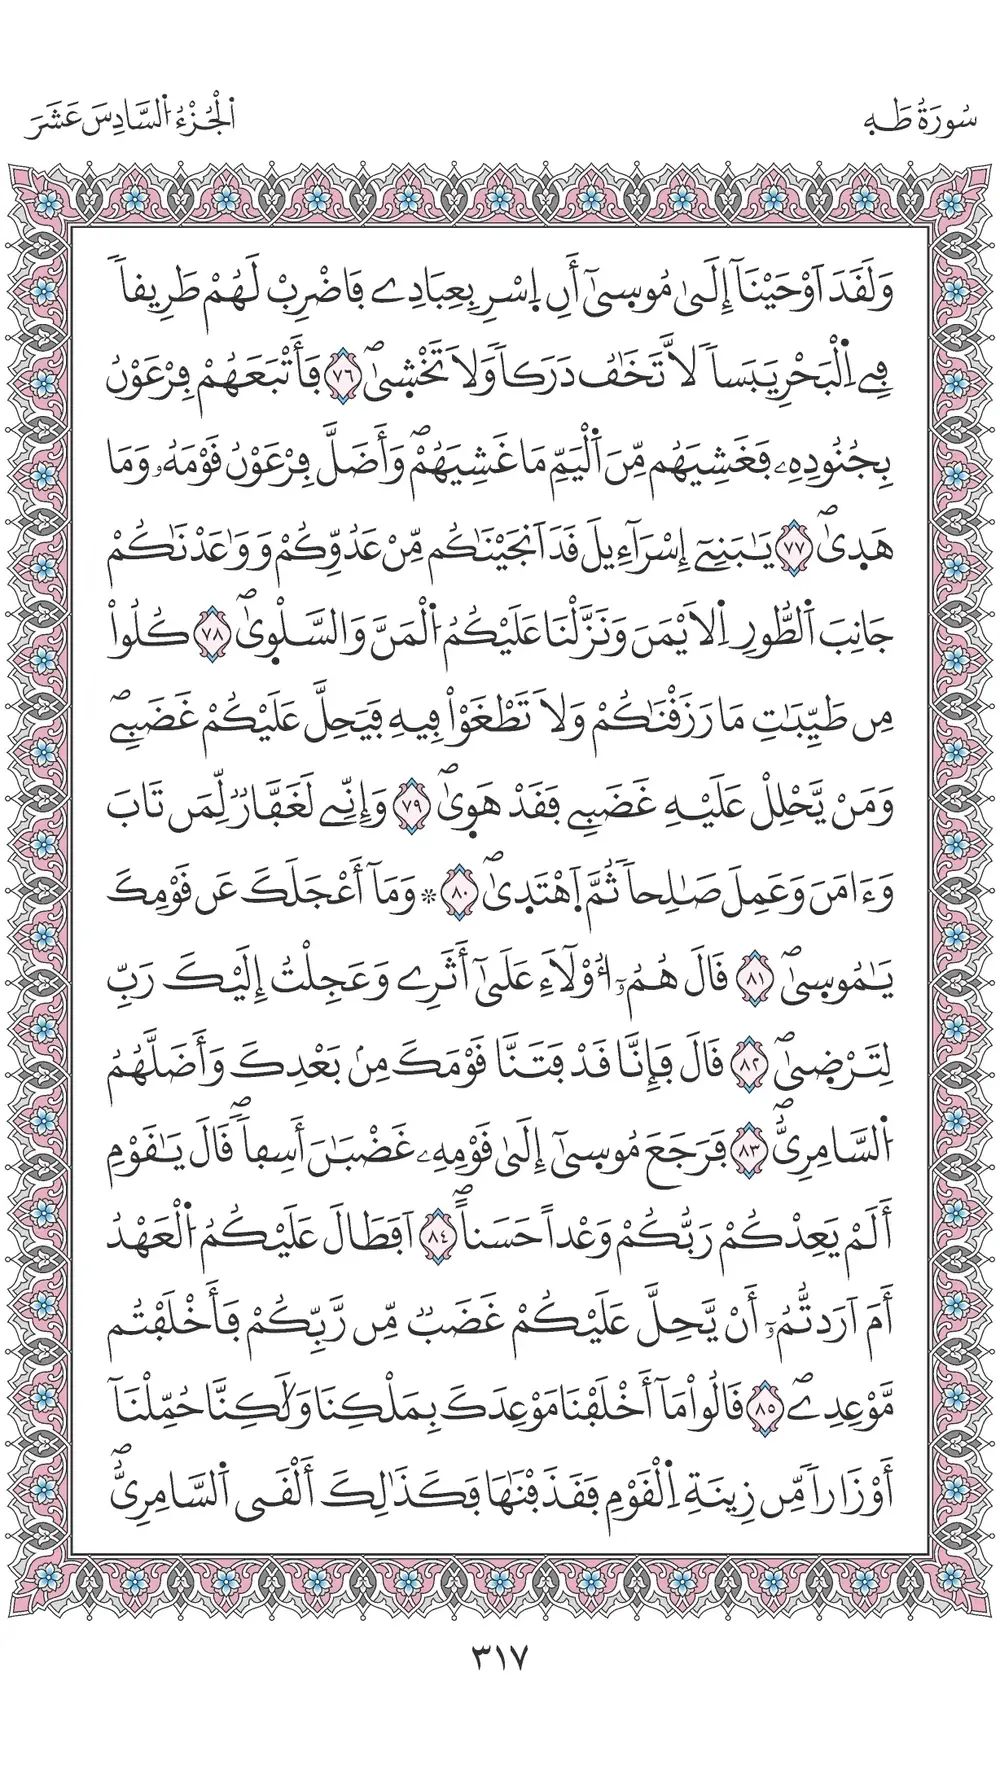 سُورَةُ طَـٰهٖ
اَ۬لْجُزْءُ اُ۬لسَّادِسَ عَشَرَ
وَلَقَدَ اَوْحَيْنَآ إِلَىٰ مُوسۭيٰٓ أَنِ اِ۪سْرِ بِعِبَادِے فَاضْرِبْ لَهُمْ طَرِيقاٗ
فِے اِ۬لْبَحْرِ يَبَساٗ لَّا تَخَٰفُ دَرَكاٗ وَلَا تَخْش۪يٰۖ ٧٦ فَأَتْبَعَهُمْ فِرْعَوْنُ
بِجُنُودِهِۦ فَغَشِيَهُم مِّنَ اَ۬لْيَمِّ مَا غَشِيَهُمْۖ وَأَضَلَّ فِرْعَوْنُ قَوْمَهُۥ وَمَا
هَد۪يٰۖ ٧٧ يَٰبَنِےٓ إِسْرَآءِيلَ قَدَ اَنجَيْنَٰكُم مِّنْ عَدُوِّكُمْ وَوَٰعَدْنَٰكُمْ
جَانِبَ اَ۬لطُّورِ اِ۬لَايْمَنَ وَنَزَّلْنَا عَلَيْكُمُ اُ۬لْمَنَّ وَالسَّلْو۪يٰۖ ٧٨ كُلُواْ
مِن طَيِّبَٰتِ مَا رَزَقْنَٰكُمْ وَلَا تَطْغَوْاْ فِيهِ فَيَحِلَّ عَلَيْكُمْ غَضَبِےۖ
وَمَنْ يَّحْلِلْ عَلَيْهِ غَضَبِے فَقَدْ هَو۪يٰۖ ٧٩ وَإِنِّے لَغَفَّارٞ لِّمَن تَابَ
وَءَامَنَ وَعَمِلَ صَٰلِحاٗ ثُمَّ اَ۪هْتَد۪يٰۖ ٨٠ * وَمَآ أَعْجَلَكَ عَن قَوْمِكَ
يَٰمُوس۪يٰۖ ٨١ قَالَ هُمُۥٓ أُوْلَآءِ عَلَيٰٓ أَثَرِے وَعَجِلْتُ إِلَيْكَ رَبِّ
لِتَرْض۪يٰۖ ٨٢ قَالَ فَإِنَّا قَدْ فَتَنَّا قَوْمَكَ مِنۢ بَعْدِكَ وَأَضَلَّهُمُ
اُ۬لسَّامِرِيُّۖ ٨٣ فَرَجَعَ مُوس۪يٰٓ إِلَيٰ قَوْمِهِۦ غَضْبَٰنَ أَسِفاٗۖ قَالَ يَٰقَوْمِ
أَلَمْ يَعِدْكُمْ رَبُّكُمْ وَعْداً حَسَناًۖ ٨٤ اَفَطَالَ عَلَيْكُمُ اُ۬لْعَهْدُ
أَمَ اَرَدتُّمُۥٓ أَنْ يَّحِلَّ عَلَيْكُمْ غَضَبٞ مِّن رَّبِّكُمْ فَأَخْلَفْتُم
مَّوْعِدِےۖ ٨٥ قَالُواْ مَآ أَخْلَفْنَا مَوْعِدَكَ بِمَلْكِنَا وَلَٰكِنَّا حُمِّلْنَآ
أَوْزَاراٗ مِّن زِينَةِ اِ۬لْقَوْمِ فَقَذَفْنَٰهَا فَكَذَٰلِكَ أَلْقَي اَ۬لسَّامِرِيُّۖ
٣١٧